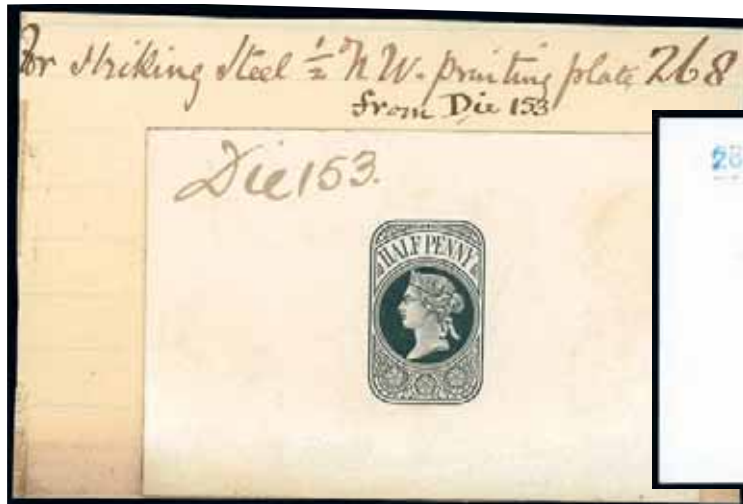 For Striking Steel ½ᵈ N.W. printing plate 268
from Die 153
Die 153.
HALF PENNY
28